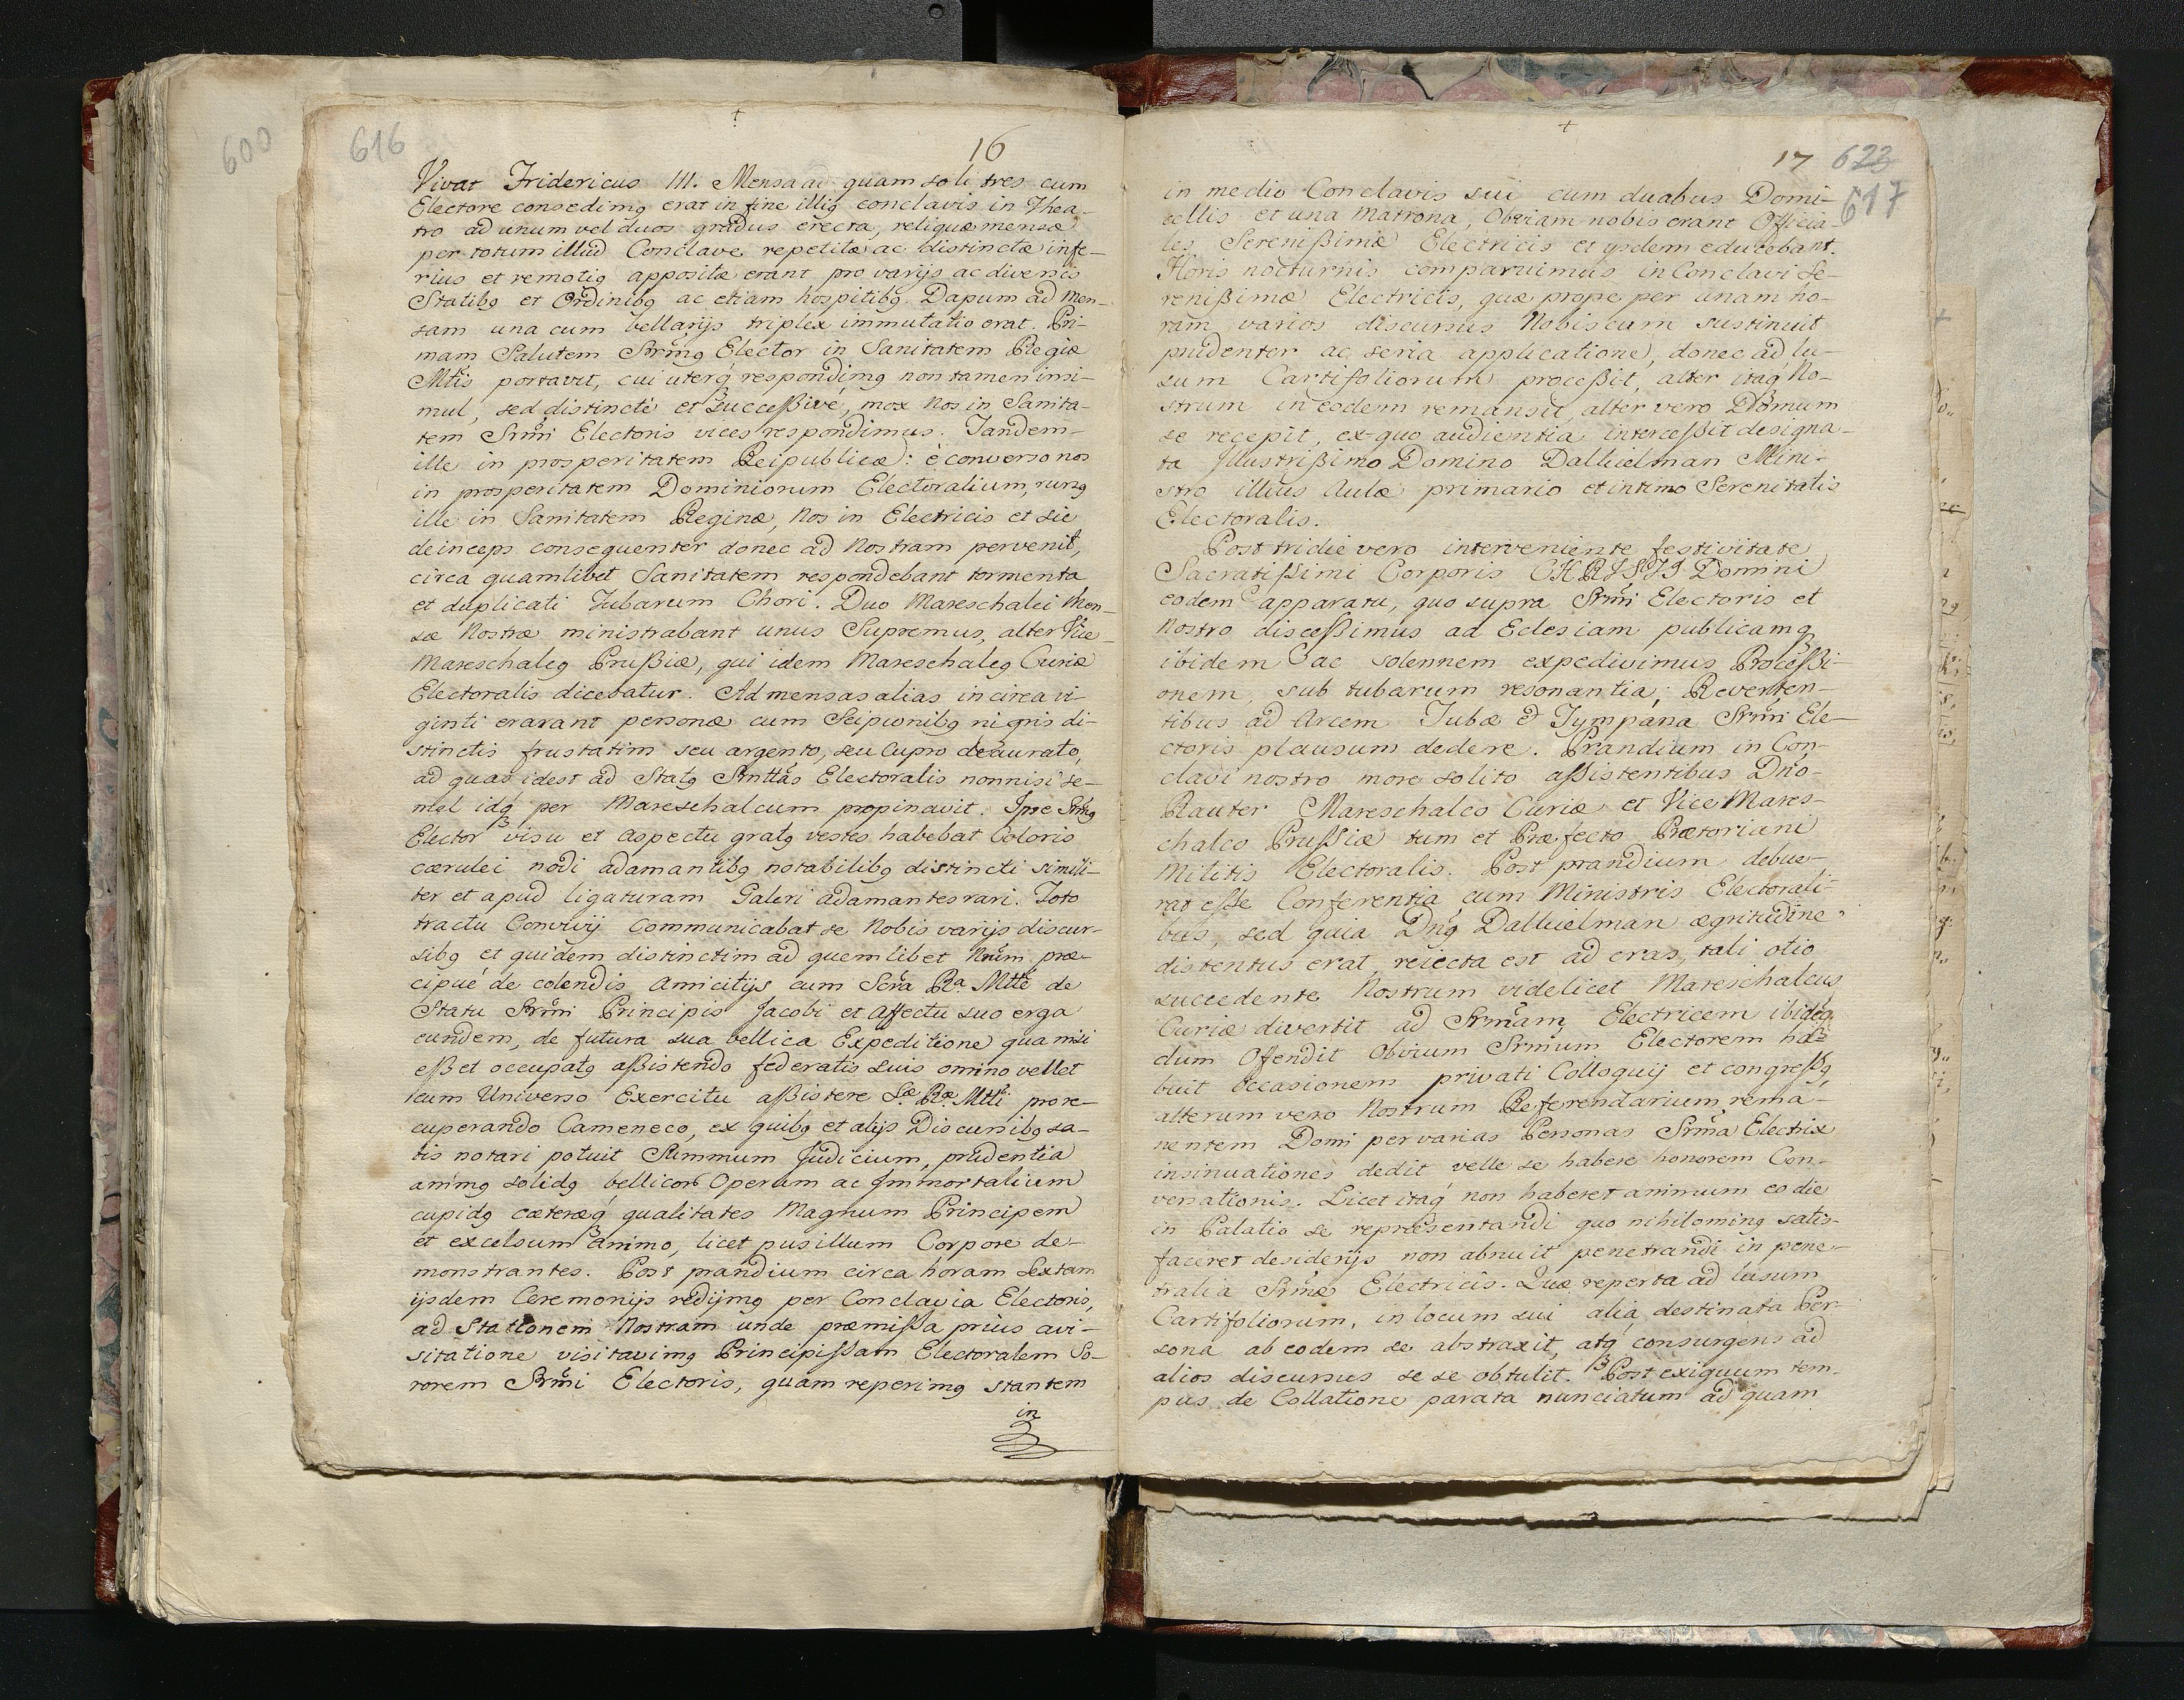 600
616
†
16
Vivat Fridericus III. Mensa ad quam soli tres cum
Electore consedimq erat in fine illiq conclavis in Thea-
tro ad unum vel duos gradus erecta, reliquæ mensæ
per totum illud Conclave repetitæ ac distinctæ infe-
rius et remotiq appositæ erant pro varijs ac diversis
Statibq et Ordinibq ac etiam hospitibq. Dapum ad Men-
sam una cum bellarijs triplex immutatio erat. Pri-
mam Salutem Srmq Elector in Sanitatem Regiæ
Mttis portavit, cui uterq respondimq non tamen insi-
mul, sed distincte et successive, mox Nos in Sanita-
tem Srmi Electoris vices respondimus. Tandem
ille in prosperitatem Reipublicæ: è converso nos
in prosperitatem Dominiorum Electoralium, rursq
ille in Sanitatem Reginæ, Nos in Electricis et sic
deinceps consequenter donec ad Nostram pervenit,
circa quamlibet Sanitatem respondebant tormenta
et duplicati Tubarum Chori. Duo Mareschalci Men-
sæ Nostræ ministrabant unus Supremus, alter Vice-
Mareschalcq Prußiæ, qui idem Mareschalcq Curiæ
Electoralis dicebatur. Ad mensas alias in circa vi-
ginti erarant personæ cum Scipionibq nigris di-
stinctis frustatim seu argento, seu Cupro deaurato,
ad quas idest ad Statq Smttas Electoralis nonnisi se-
mel idq per Mareschalcum propinavit. Ipse Srmq
Elector visu et aspectu gratq vestes habebat Coloris
cærulei nodi adamantibq notabilibq distincti simili-
ter et apud ligaturam Galeri adamantes rari. Toto
tractu Convivij Communicabat se Nobis varijs discur-
sibq et quidem distinctim ad quemlibet Nrum præ-
cipue de colendis Amicitijs cum Scra Ra Mtte de
Statu Srmi Principis Jacobi et affectu suo erga
eundem, de futura sua bellica Expeditione qua nisi
eßet occupatq aßistendo federatis suis omino vellet
cum Universo Exercitu aßistere Sæ Ræ Mtti pro re-
cuperando Cameneco, ex quibq et alijs Discursibq sa-
tis notari potuit Summum Judicium, prudentia
animq solidq bellicor Operum ac Immortalium
cupidq cæteræq qualitates Magnum Principem
et excelsum animo, licet pusillum Corpore de-
monstrantes. Post prandium circa horam Sextam
ijsdem Ceremonijs redijmq per Conclavia Electoris,
ad Stationem Nostram unde præmissa prius avi-
sitatione visitavimq Principissam Electoralem So-
rorem Srmi Electoris, quam reperimq stantem
in
†
17 623
617
in medio Conclavis sui cum duabus Domi-
cellis et una Matrona, Obviam nobis erant Officia-
les Serenißimæ Electricis et ijsdem educebant.
Horis nocturnis comparuimus in Conclavi Se-
renißimæ Electricis, quæ prope per unam ho-
ram varios discursus Nobiscum sustinuit
prudenter ac seria applicatione, donec ad lu-
sum Cartifoliorum proceßit, alter itaq No-
strum in eodem remansit, alter vero Domum
se recepit, ex quo audientia interceßit designa-
ta Illustrißimo Domino Dalluelman Mini-
stro illius Aulæ primario et intimo Serenitatis
Electoralis.
Post tridie vero interveniente festivitate
Sacratissimi Corporis CHRISTI Domini
eodem apparatu, quo supra Srmi Electoris et
Nostro discessimus ad Eclesiam publicamq
ibidem ac solennem expedivimus Processi-
onem, sub tubarum resonantia; Reverten-
tibus ad Arcem Tubæ et Tympana Srmi Ele-
ctoris plausum dedere. Prandium in Con-
clavi nostro more solito assistentibus Dno
Rauter Mareschalco Curiæ et Vice Mares-
chalco Prussiæ tum et Præfecto Prætoriani
Militis Electoralis. Post prandium debue-
rat esse Conferentia cum Ministris Electorali-
bus, sed quia Dnq Dalluelman ægritudine
distentus erat, reiecta est ad cras, tali otio
succedente Nostrum videlicet Mareschalcus
Curiæ divertit ad Srmam Electricem ibidéq
dum Offendit Obvium Srmum Electorem ha-
buit occasionem privati Colloquij et congressq,
alterum vero Nostrum Referendarium rema-
nentem Domi per varias Personas Srma Electrix
insinuationes dedit velle se habere honorem Con-
versationis. Licet itaq non haberet animum eo die
in Palatio se repræsentandi quo nihilominq satis-
faceret desiderijs non abnuit penetrandi in pene-
tralia Srmæ Electricis. Quæ reperta ad lusum
Cartifoliorum, in locum sui alia destinata Per-
sona ab eodem se abstraxit, atq consurgens ad
alios discursus se se obtulit. Post exiguum tem-
pus de Collatione parata nunciatum ad quam